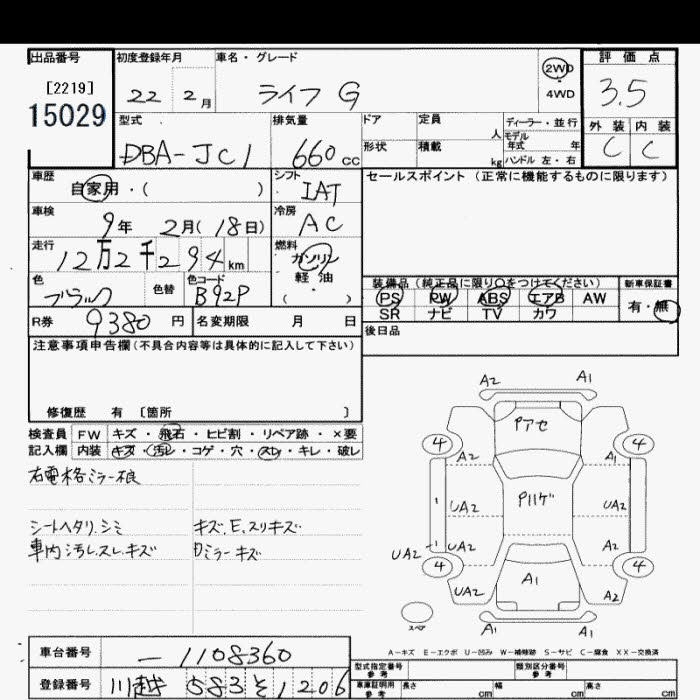 出品番号 初度登録年月 車名・グレード 2WD 4WD 評価点
[2219] 15029 22 2月 ライフ G 3.5
型式 排気量 ドア 定員 人 ディーラー・並行 外装 内装
DBA-JC1 660cc 形状 積載 kg モデル年式 年 ハンドル 左・右 C C
車歴 自家用・( ) シフト IAT セールスポイント(正常に機能するものに限ります)
車検 9年 2月(18日) 冷房 AC
走行 12万2千294km 燃料 ガソリン 軽油 ( )
色 ブラック 色替 色コード B92P
装備品(純正品に限り○をつけてください) 新車保証書
PS PW ABS エアB AW 有・無
SR ナビ TV カワ
R券 9380円 名変期限 月 日 後日品
注意事項申告欄(不具合内容等は具体的に記入して下さい)
修復歴 有 〔箇所 〕
検査員 FW キズ・飛石・ヒビ割・リペア跡・×要
記入欄 内装 キズ・汚レ・コゲ・穴・スレ・キレ・破レ
右電格ミラー不良
シートヘタリ.シミ キズ.E.スリキズ
車内汚レ.スレ.キズ Dミラーキズ
A2 A1
Pアセ
4 4
A2 A1
Pハゲ
UA2 UA2
UA2 UA2 A2
4 4
UA2 A1 A2
スペア A1 A1
A-キズ E-エクボ U-凹み W-補修跡 S-サビ C-腐食 XX-交換済
車台番号 -1108360
型式指定番号 参考 類別区分番号 参考
登録番号 川越 583 そ 1206
車庫証明用 参考 長さ cm 幅 cm 高さ cm